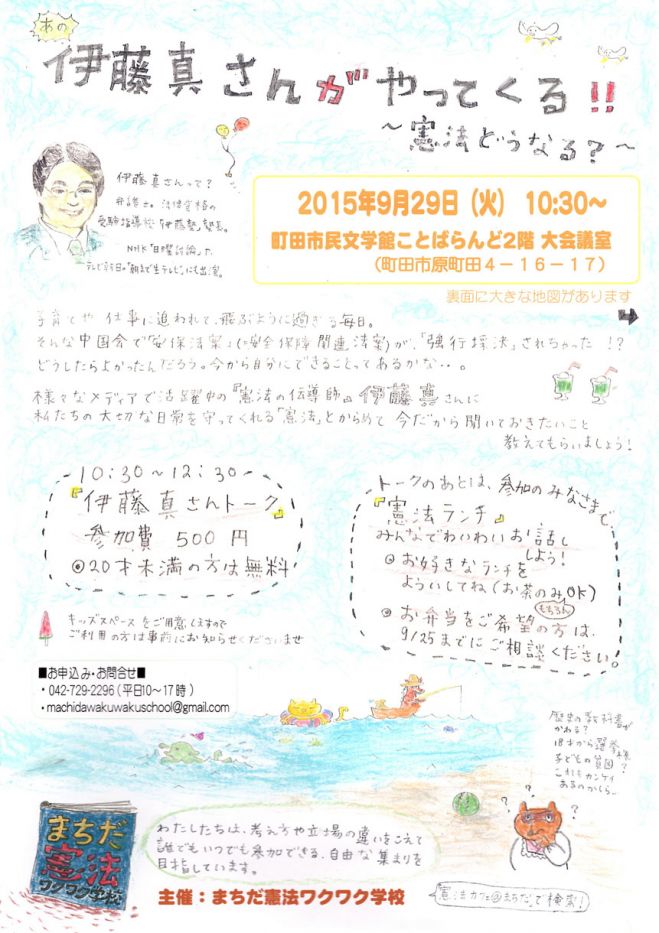 あの
伊藤真さんがやってくる!!
～憲法どうなる?～
伊藤真さんって?
弁護士。法律資格の
受験指導校「伊藤塾」塾長。
NHK「日曜討論」、
テレビ朝日の「朝まで生テレビ」にも出演。
2015年9月29日（火） 10:30～
町田市民文学館ことばらんど2階 大会議室
（町田市原町田4－16－17）
裏面に大きな地図があります
子育てや仕事に追われて、飛ぶように過ぎる毎日。
そんな中国会で「安保法案」(安全保障関連法案)が、「強行採決」されちゃった!?
どうしたらよかったんだろう。今から自分にできることってあるかな・・。
様々なメディアで活躍中の『憲法の伝導師』伊藤真さんに
私たちの大切な日常を守ってくれる「憲法」とからめて今だから聞いておきたいこと
教えてもらいましょう!
10:30～12:30～
『伊藤真さんトーク』
参加費 500円
◎20才未満の方は無料
トークのあとは、参加のみなさまで、
『憲法ランチ』
みんなでわいわいお話し
しよう!
◎お好きなランチを
よういしてね(お茶のみOK)
もちろん
◎お弁当をご希望の方は、
9/25までにご相談ください。
キッズスペースをご用意しますので
ご利用の方は事前にお知らせくださいませ
■お申込み・お問合せ■
・042-729-2296（平日10～17時）
・machidawakuwakuschool@gmail.com
歴史の教科書が
かわる?
18才から選挙権?
子どもの貧困
これもカンケイ
あるのかしら…
? ? ?
まちだ
憲法
ワクワク学校
わたしたちは、考え方や立場の違いをこえて
誰でもいつでも参加できる、自由な集まりを
目指しています。
主催：まちだ憲法ワクワク学校
「憲法カフェ@まちだ」で検索!